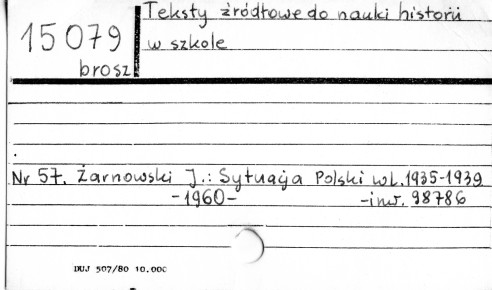 Teksty źródłowe do nauki historii
15079
w szkole
brosz
Nr 57. Żarnowski J.: Sytuacja Polski w l. 1935-1939
-1960- -inw. 98786
DUJ 507/80 10.000